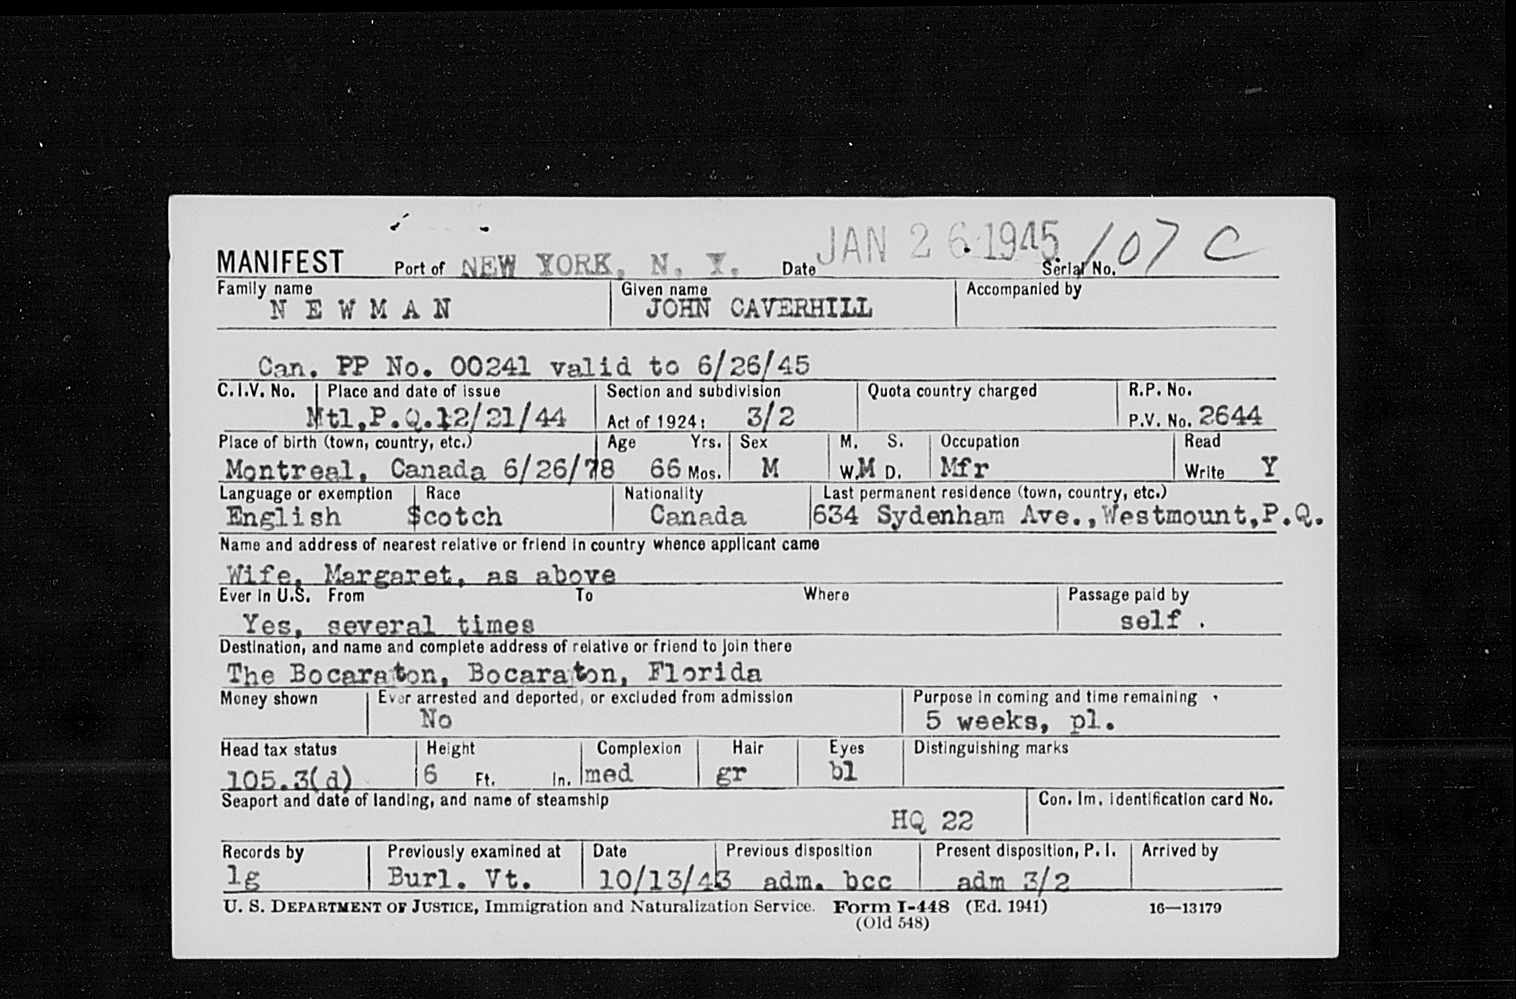 MANIFEST Port of NEW YORK, N. Y. Date JAN 26 1945 Serial No. 107 C
Family name Given name Accompanied by
NEWMAN JOHN CAVERHILL
Can. PP No. 00241 valid to 6/26/45
C.I.V. No. Place and date of issue Section and subdivision Quota country charged R.P. No.
Mtl,P.Q.12/21/44 Act of 1924: 3/2 P.V. No. 2644
Place of birth (town, country, etc.) Age Yrs. Sex M. S. Occupation Read
Montreal, Canada 6/26/78 66 Mos. M W.M D. Mfr Write Y
Language or exemption Race Nationality Last permanent residence (town, country, etc.)
English Scotch Canada 634 Sydenham Ave.,Westmount,P.Q.
Name and address of nearest relative or friend in country whence applicant came
Wife, Margaret, as above
Ever in U.S. From To Where Passage paid by
Yes, several times self .
Destination, and name and complete address of relative or friend to join there
The Bocaraton, Bocaraton, Florida
Money shown Ever arrested and deported, or excluded from admission Purpose in coming and time remaining
No 5 weeks, pl.
Head tax status Height Complexion Hair Eyes Distinguishing marks
105.3(d) 6 Ft. In. med gr bl
Seaport and date of landing, and name of steamship Con. Im. Identification card No.
HQ 22
Records by Previously examined at Date Previous disposition Present disposition, P. I. Arrived by
lg Burl. Vt. 10/13/43 adm. bcc adm 3/2
U. S. DEPARTMENT OF JUSTICE, Immigration and Naturalization Service. Form I-448 (Ed. 1941) 16—13179
(Old 548)